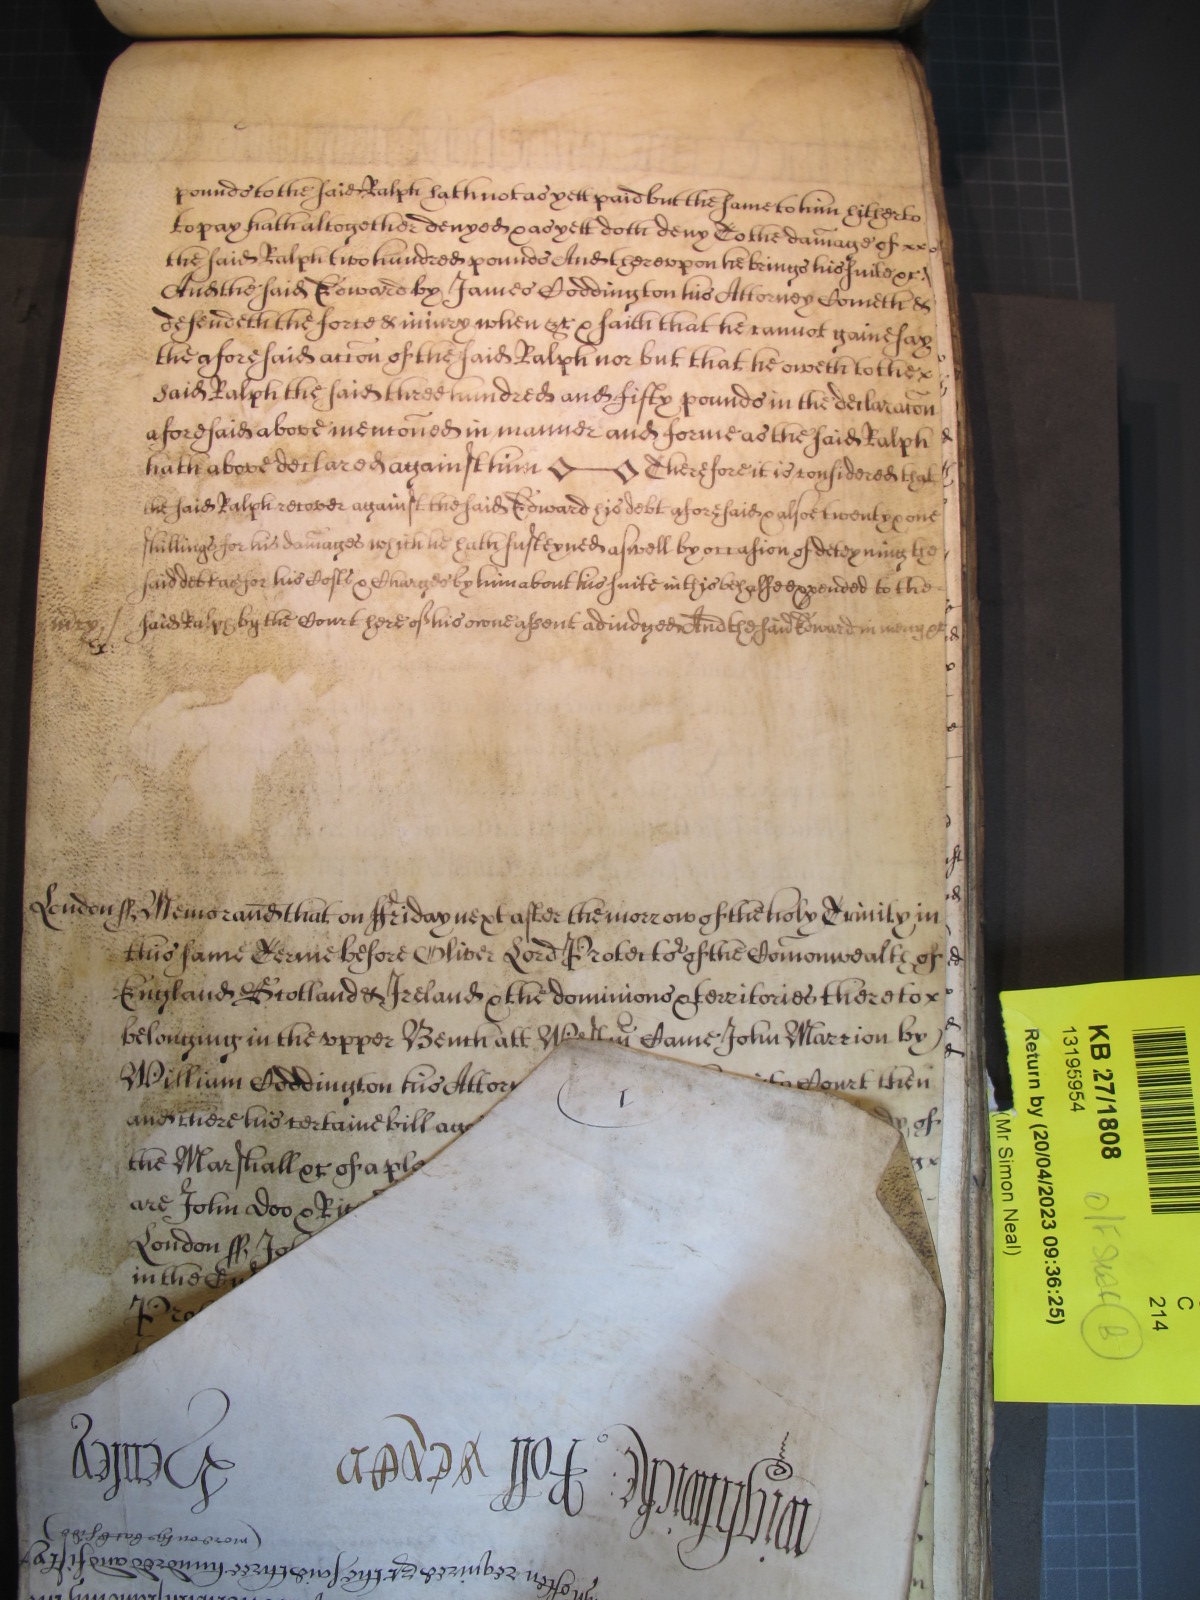 pounds to the said Ralph hath not as yett paid but the same to him hitherto
to pay hath altogether denyed & as yett doth deny To the damage of
the said Ralph two hundred pounds And thereupon he brings his suite &c
And the said Edward by James Coddington his Attorney Cometh &
defendeth the force & injury when &c & saith that he cannot gainesay
the aforesaid accon of the said Ralph nor but that he oweth to the x
said Ralph the said three hundred and fifty pounds in the declaracon
aforesaid above menconed in manner and forme as the said Ralph
hath above declared against him Therefore it is considered that
the said Ralph recover against the said Edward his debt aforesaid & alsoe twenty & one
shillings for his damages which he hath susteyned aswell by occasion of deteyning the
said debt as for his Costs & Charges by him about his suite in this behalfe expended to the
said Ralph by the Court here of his owne assent adiudged And the said Edward in mercy &c
London ss Memorand that on ffriday next after the morrow of the holy Trinity in
this same Terme before Oliver Lord Protector of the Comonwealth of
England Scotland & Ireland & the dominions & territories thereto x
belonging in the upper Bench att Came John Marrion by
William Coddington his Attor Court then
and there his certaine bill of
the Marshall &c of a ple
are John Doo & Ric
London ss Jo
in the
Pro
1
Roll
Henley
(more on the backside)
often required &c the said three hundred and fifty
KB 27/1808
13195954
Return by (20/04/2023 09:36:25)
(Mr Simon Neal)
C
214
B